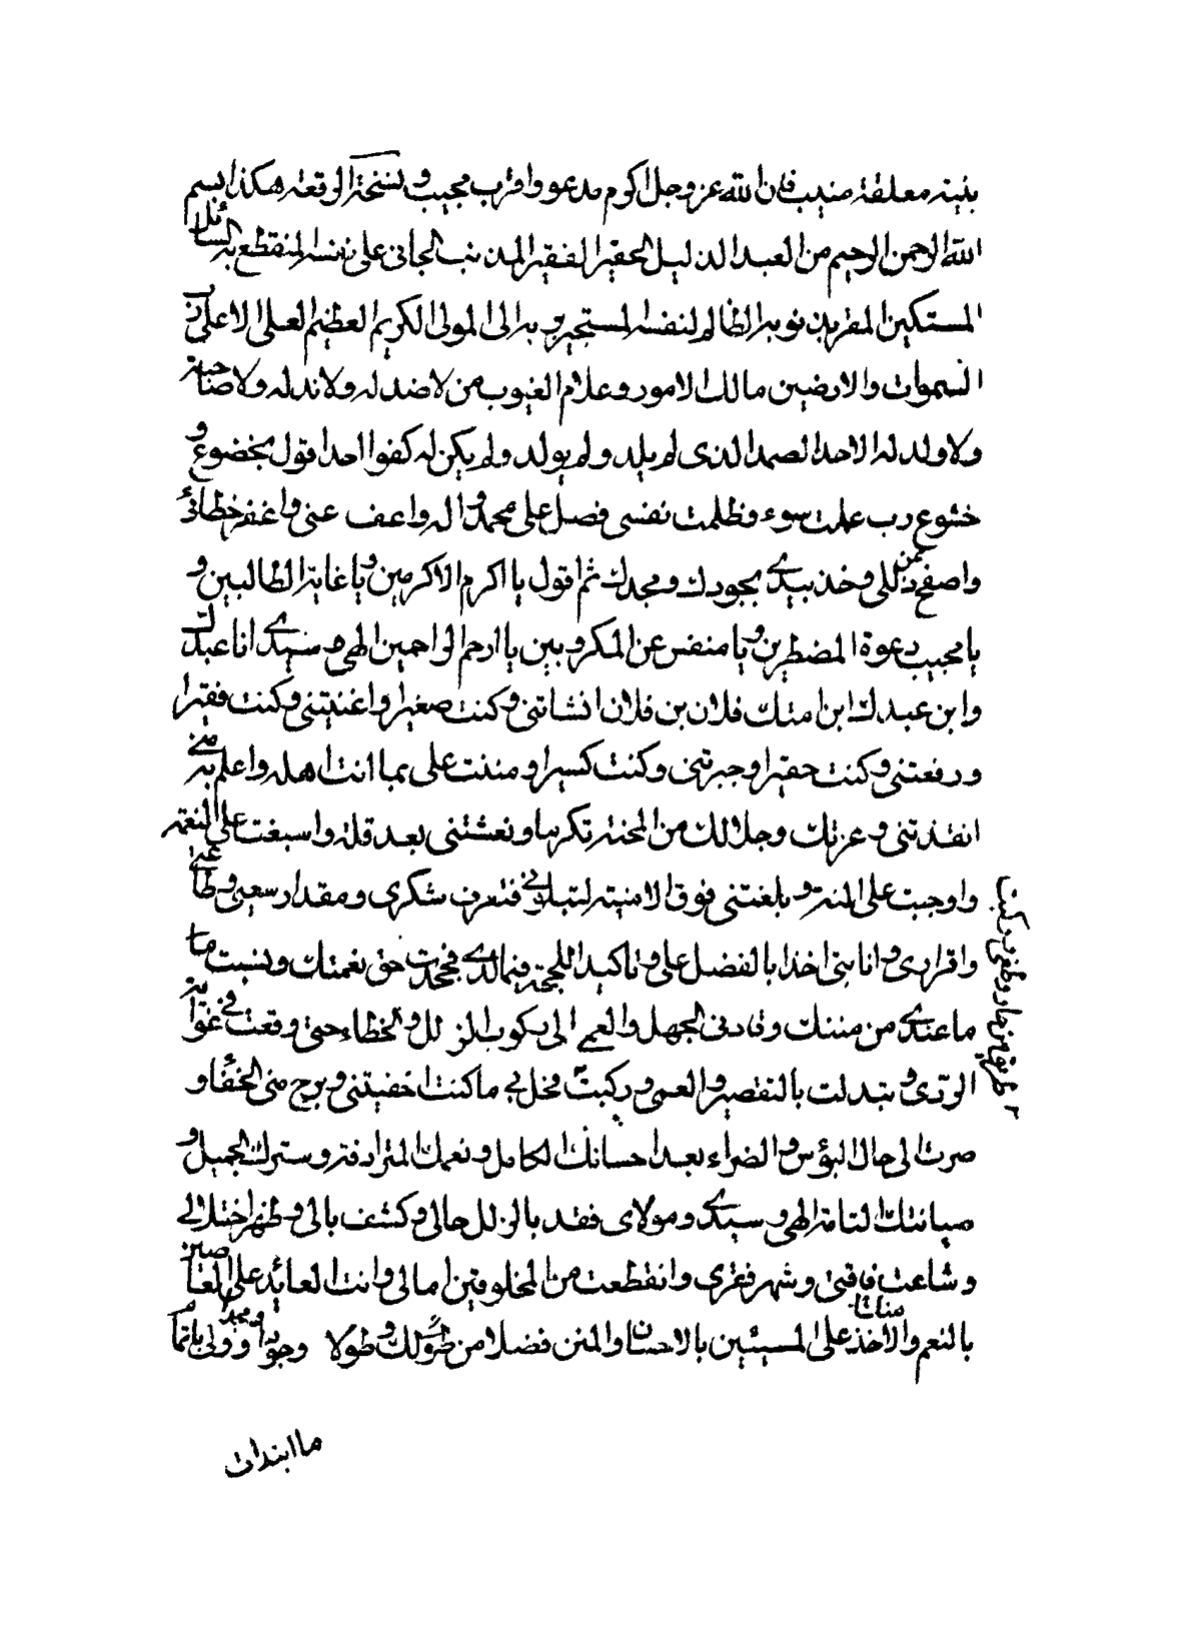 بنية معلقة منيب فان الله عز وجل اكرم مدعو واقرب مجيب و نسخة الرقعة هكذا بسم
الله الرحمن الرحيم من العبد الذليل الحقير الفقير المذنب الجانى على نفسه المنقطع به السائل
المستكين المقر بذنوبه الظالم لنفسه المستجير به الى المولى الكريم العظيم العلى الاعلى رب
السموات والارضين مالك الامور وعلام الغيوب من لا ضد له ولا ند له ولا صاحبة
ولا ولد له الاحد الصمد الذى لم يلد ولم يولد ولم يكن له كفوا احد اقول بخضوع و
خشوع رب عملت سوء وظلمت نفسى فصل على محمد واله واعف عنى واغفر خطائى
واصفح عن زللى وخذ بيدى بجودك ومجدك ثم اقول يا اكرم الاكرمين ويا غاية الطالبين و
يا مجيب دعوة المضطرين ويا منفس عن المكروبين يا ارحم الراحمين الهى و سيدى انا عبدك
وابن عبدك ابن امتك فلان بن فلان انشاتنى وكنت صغيرا واغنيتنى وكنت فقيرا
ورفعتنى وكنت حقيرا وجبرتنى وكنت كسيرا ومننت على بما انت اهله واعلم به منى
انقذتنى و عزتك وجلالك من المحنة تكرما ونعشتنى بعد قلة واسبغت على النعمة
واوجبت على المنة و بلغتنى فوق الامنية لتبلونى فتعرف شكرى ومقدار سعيى وطاعتى
واقرارى وانابتى اخذا بالفضل على وتاكيد اللحجة فيما لدى فجحدت حق نعمتك ونسيت
ما عندى من مننك وقادنى الجهل والعمى الى ركوب الزلل والخطاء حتى وقعت فى غواية
الردى و تبدلت بالتقصير والعمى و ركبت ما كنت اخفيتنى و برح منى الخفاء و
صرت الى حال البؤس والضراء بعد احسانك الكامل ونعمك المترادفة وسترك الجميل و
صيانتك التامة الهى و سيدى ومولاى فقد بالزلل حالى وكشف بالى وظهر اختلالى
وشاعت فاقتى وشهر فقرى وانقطعت من المخلوقين امالى وانت العائد على العاصين
بالنعم والاخذ على المسيئين بالاحسان والمنن فضلا من طولك وطولا وجودا ومجدا
ما ابتدات